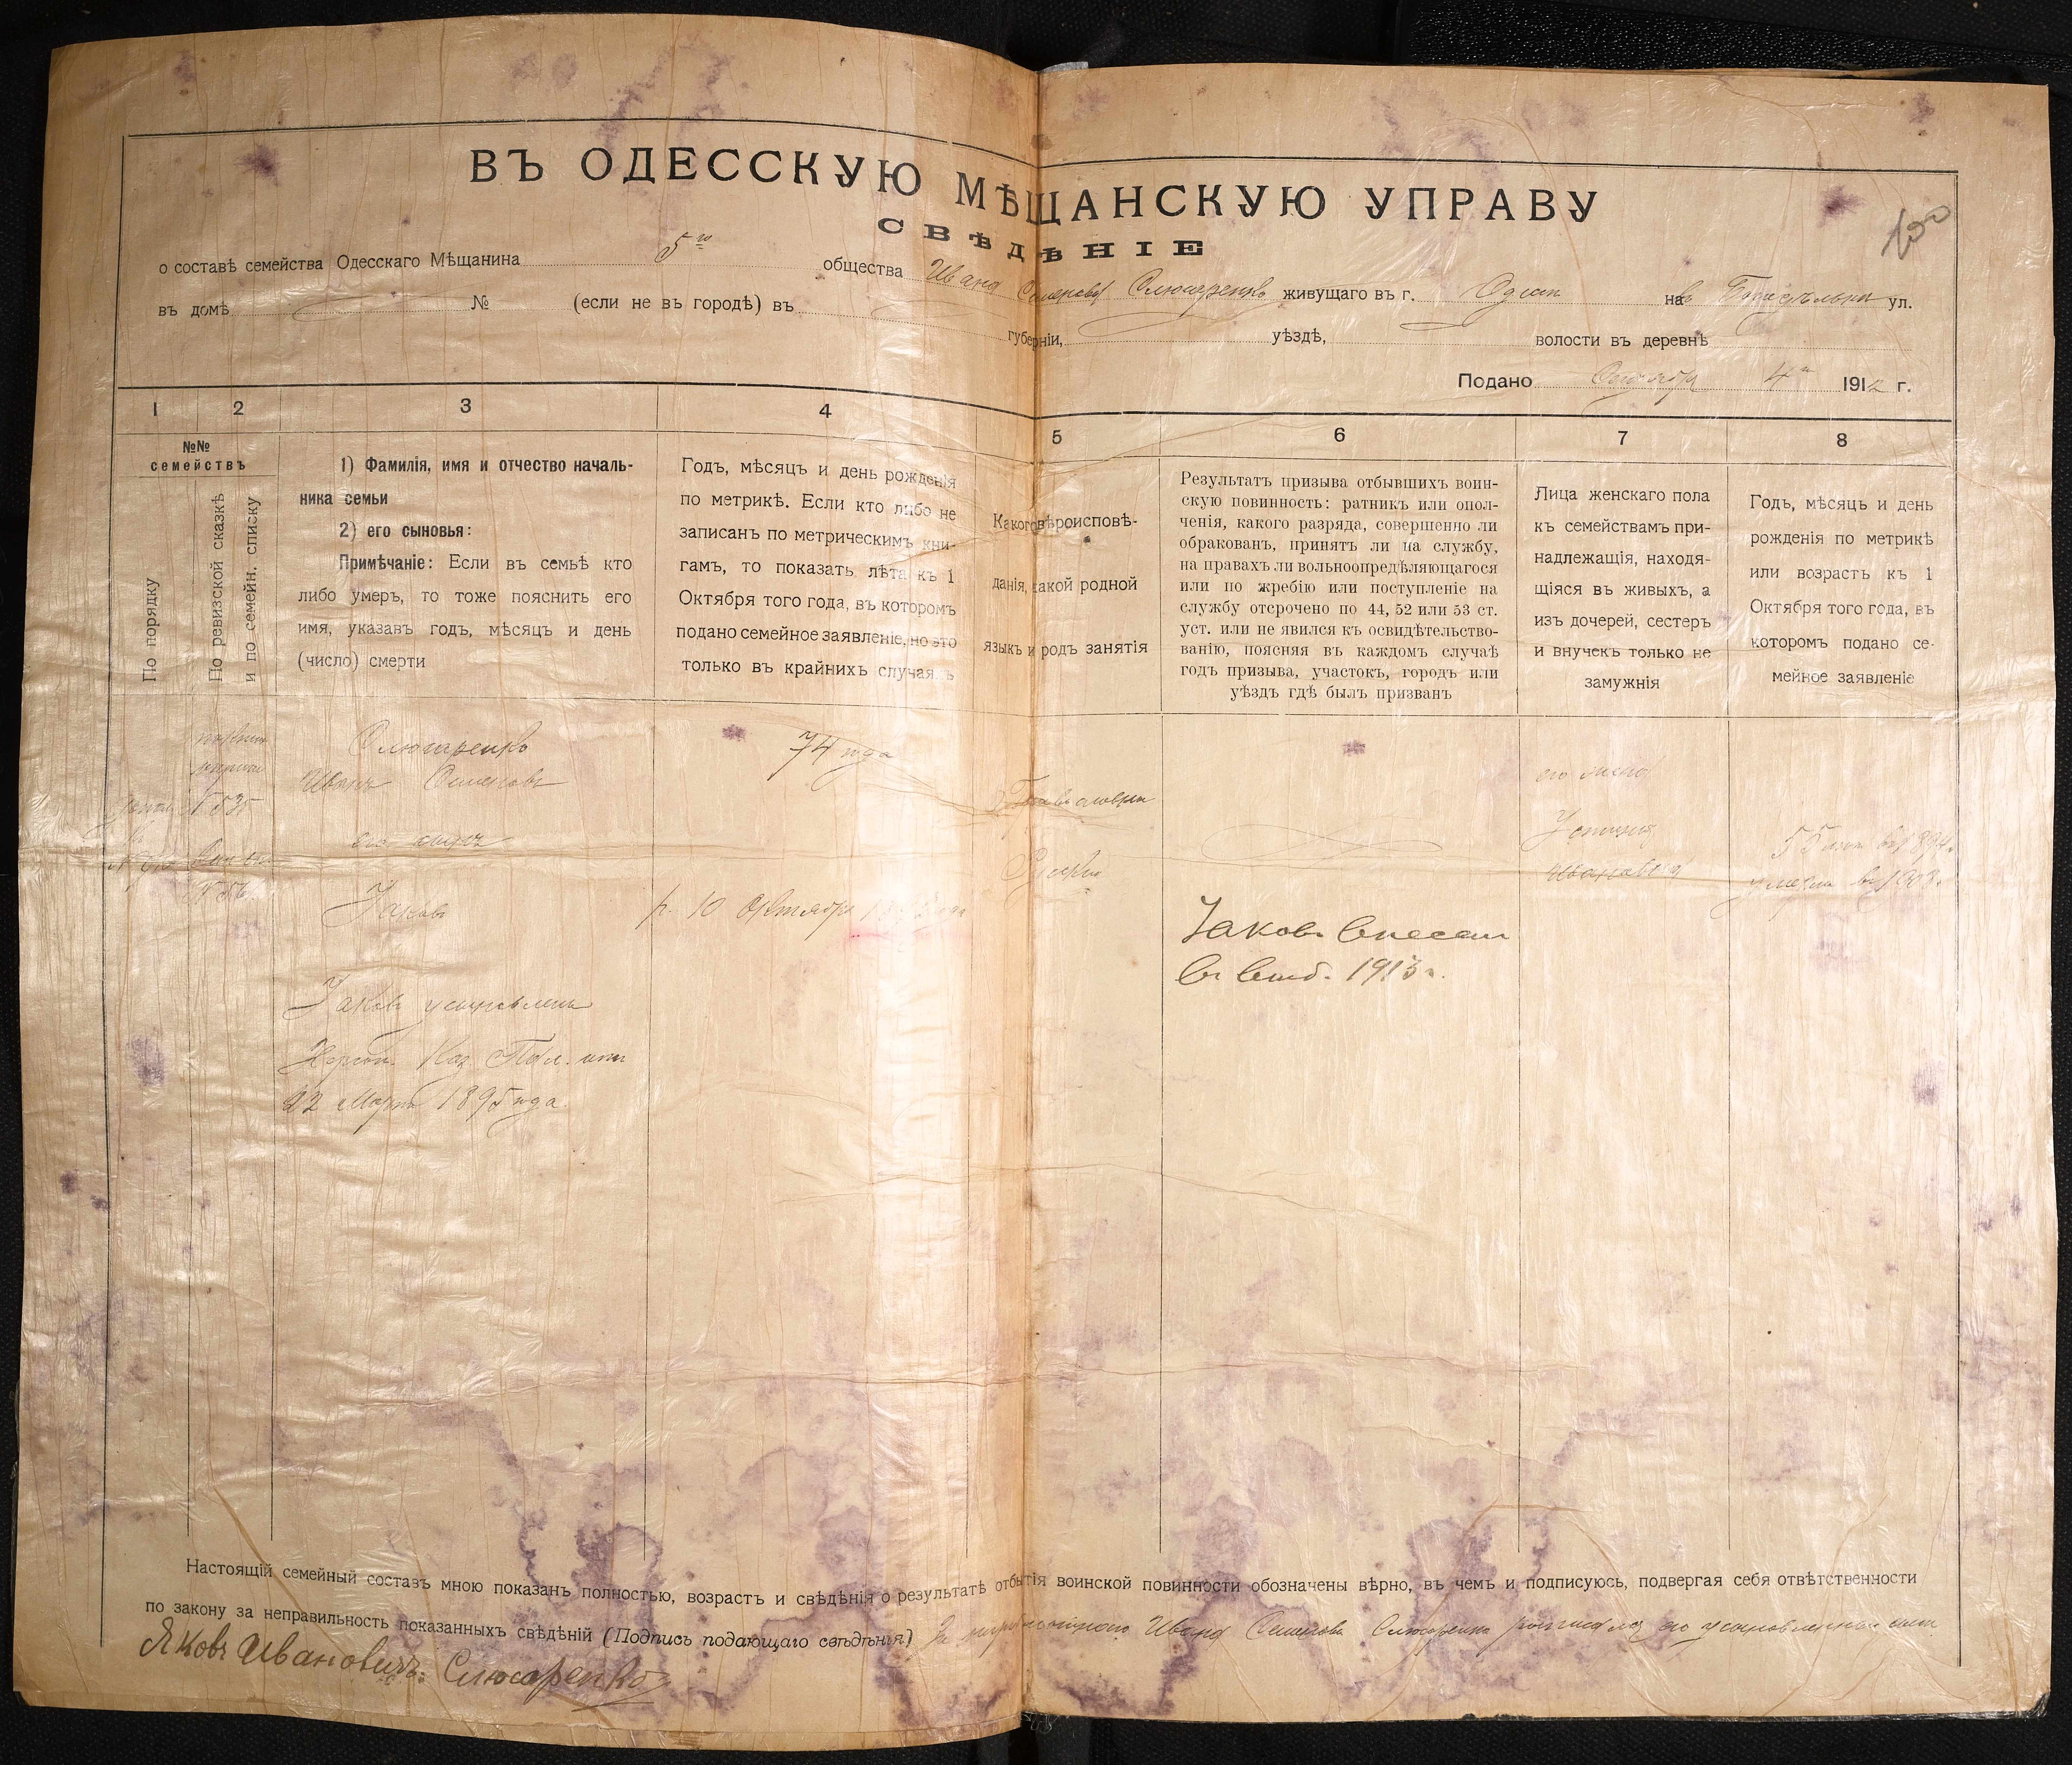 100
ВЪ ОДЕССКУЮ МѢЩАНСКУЮ УПРАВУ
СВѢДѢНІЕ
о составѣ семейства Одесскаго Мѣщанина 5го общества Ивана Семенова Слюсаренко живущаго въ г. на ул.
въ домѣ № (если не въ городѣ) въ губерніи, уѣздѣ, волости въ деревнѣ
Подано 4 1912 г.
1 2 3 4 5 6 7 8
№№
семействъ
По порядку
По ревизской сказкѣ
и по семейн. списку
1) Фамилія, имя и отчество началь-
ника семьи
2) его сыновья:
Примѣчаніе: Если въ семьѣ кто
либо умеръ, то тоже пояснить его
имя, указавъ годъ, мѣсяцъ и день
(число) смерти
Годъ, мѣсяцъ и день рожденія
по метрикѣ. Если кто либо не
записанъ по метрическимъ кни-
гамъ, то показать лѣта къ 1
Октября того года, въ которомъ
подано семейное заявленіе, но это
только въ крайнихъ случаяхъ
Какого вѣроисповѣ-
данія, какой родной
языкъ и родъ занятія
Результатъ призыва отбывшихъ воин-
скую повинность: ратникъ или опол-
ченія, какого разряда, совершенно ли
обракованъ, принятъ ли на службу,
на правахъ ли вольноопредѣляющагося
или по жребію или поступленіе на
службу отсрочено по 44, 52 или 53 ст.
уст. или не явился къ освидѣтельство-
ванію, поясняя въ каждомъ случаѣ
годъ призыва, участокъ, городъ или
уѣздъ гдѣ былъ призванъ
Лица женскаго пола
къ семействамъ при-
надлежащія, находя-
щіяся въ живыхъ, а
изъ дочерей, сестеръ
и внучекъ только не
замужнія
Годъ, мѣсяцъ и день
рожденія по метрикѣ
или возрастъ къ 1
Октября того года, въ
которомъ подано се-
мейное заявленіе
№ 535
Слюсаренко
Иванъ Семеновъ
74 года
его сынъ
Яковъ
р. 10 Октября
Яковъ усыновленъ
Херсон. Каз. Пал. отъ
22 Марта 1895 года
Православн
Русскій
Яковъ внесенъ
въ 1913 г.
его жена
Устинія
Ивановна
55 лѣтъ въ 1894 г.
умерла въ 1908 г.
Настоящій семейный составъ мною показанъ полностью, возрастъ и свѣдѣнія о результатѣ отбытія воинской повинности обозначены вѣрно, въ чемъ и подписуюсь, подвергая себя отвѣтственности
по закону за неправильность показанныхъ свѣдѣній (Подпись подающаго свѣдѣнія) За неграмотнаго Ивана Семенова Слюсаренко росписался его усыновленный сынъ
Яковъ Ивановичъ Слюсаренко